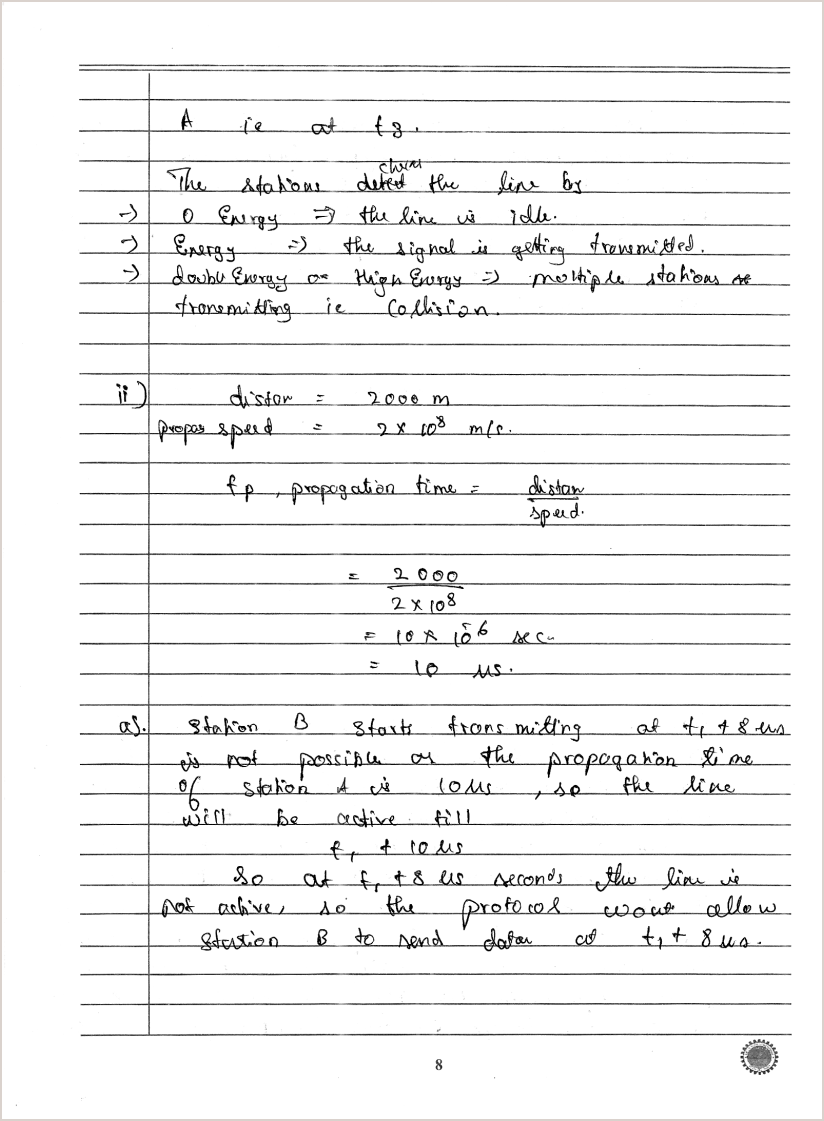 A ie at t3.
The stations detect the line by
-> 0 Energy => the line is idle.
-> Energy => the signal is getting transmitted.
-> double Energy or High Energy => multiple stations
transmitting ie Collision.
ii) distan = 2000 m
propag speed = 2 × 10^8 m/s.
tp, propagation time = distan
speed.
= 2000
2 × 10^8
= 10 × 10^-6 sec.
= 10 µs.
a). Station B starts transmitting at t1 + 8 µs
is not possible as the propagation time
of station A is 10 µs, so the line
will be active till
t1 + 10 µs
So at t1 + 8 µs seconds the line is
not active, so the protocol wont allow
station B to send data at t1 + 8 µs.
8